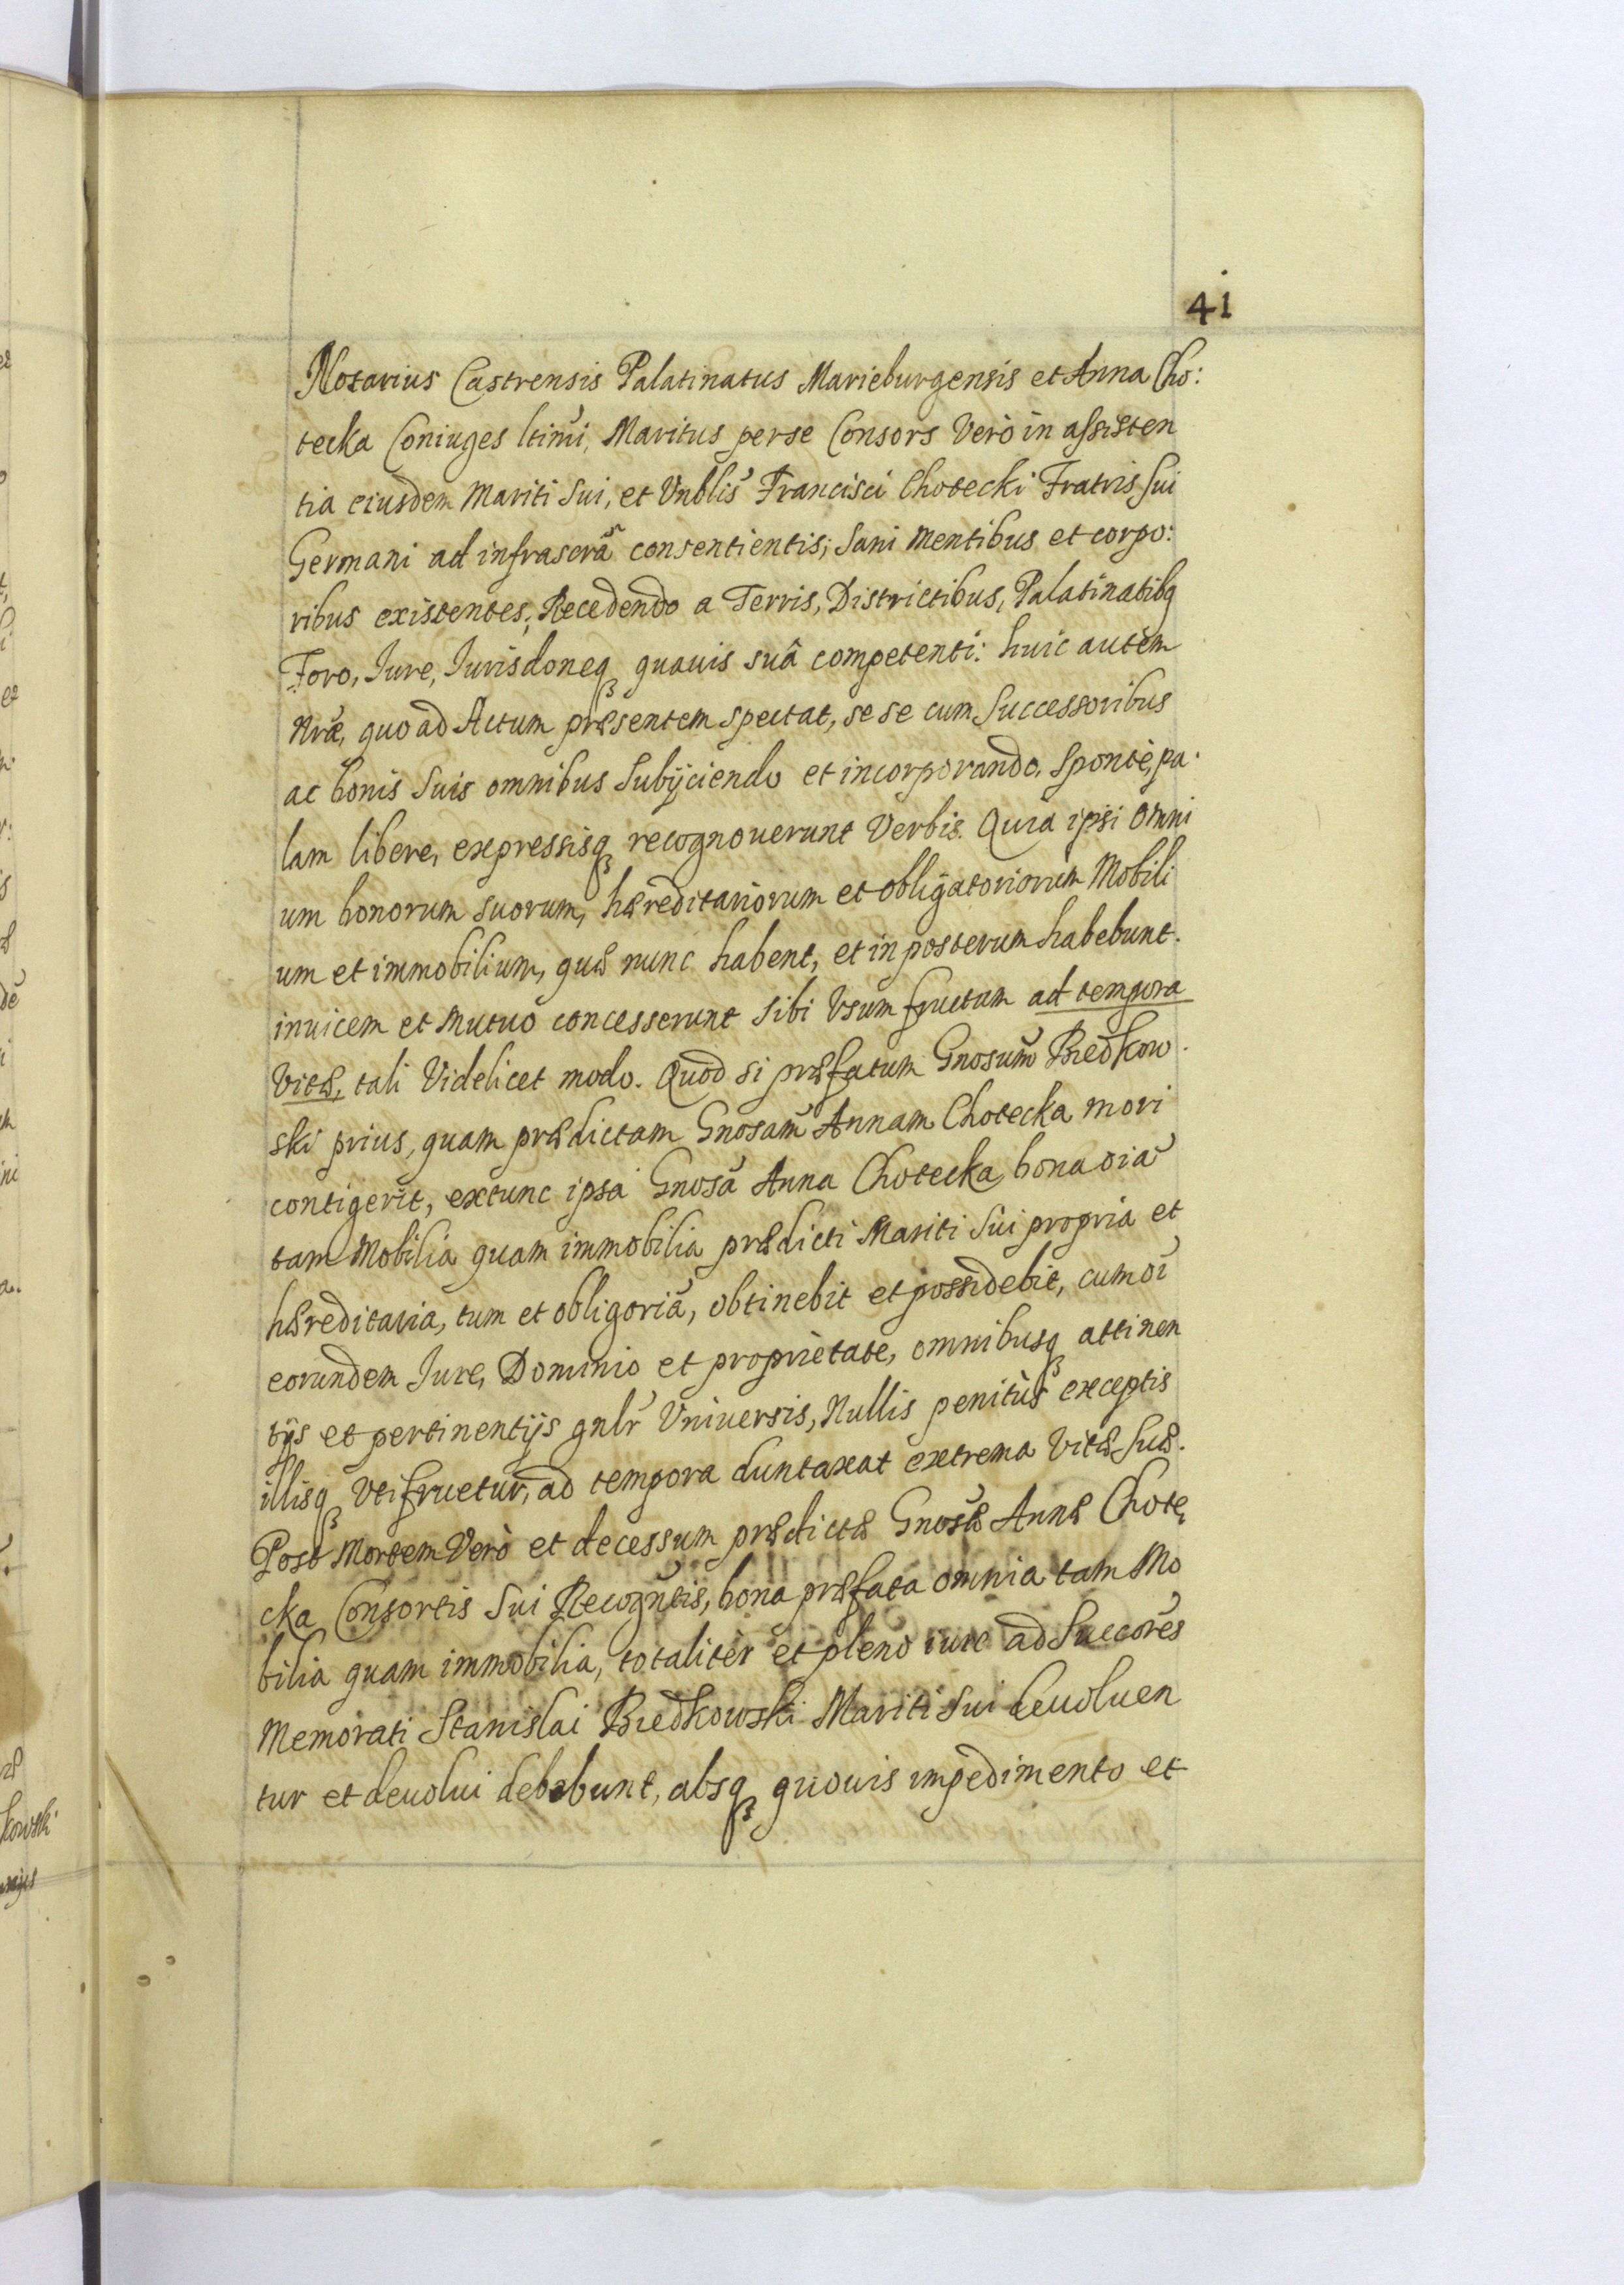 41
Notarius Castrensis Palatinatus Marieburgensis et Anna Cho:
tecka Coniuges ltimi, Maritus perse Consors Verò in assisten
tia eiusdem Mariti Sui, et Vnblis Francisci Chotecki Fratris Sui
Germani ad infrascrã consentientis; Sani Mentibus et corpo:
ribus existentes; Recedendo a Terris, Districtibus, Palatinatibq
Foro, Iure, Iurisdoneq quauis suâ competenti: huic autem
Nræ, quo ad Actum præsentem spectat, se se cum Successoribus
ac bonis Suis omnibus Subijciendo et incorporando. Spontè, pa.
lam libere, expressisq recognouerunt Verbis. Quia ipsi Omni
um bonorum suorum, hæreditariorum et obligatoriorum Mobili
um et immobilium, quæ nunc habent, et in posterum habebunt.
inuicem et Mutuo concesserunt Sibi Vsumfructum ad tempora
Vitæ, tali Videlicet modo. Quod si præfatum Gnosum Biedkow.
ski prius, quam prædictam Gnosam Annam Chotecka mori
contigerit, extunc ipsa Gnosa Anna Chotecka bona oia
tam Mobilia quam immobilia prædicti Mariti Sui propria et
hæreditaria, tum et obligoria, obtinebit et possidebit, cum oi
eorundem Iure, Dominio et proprietate, omnibusq attinen
tijs et pertinentijs gnlr Vniuersis, Nullis penitùs exceptis
illisq Vtifruetur, ad tempora duntaxat extrema Vitæ Suæ.
Post Mortem Verò et decessum prædictæ Gnosæ Annæ Chote,
cka Consortis Sui Recogntis, bona præfata omnia tam Mo
bilia quam immobilia, totalitèr et pleno iure ad Succores
Memorati Stanislai Biedkowski Mariti Sui deuoluen
tur et deuolui debebunt, absq quouis impedimento et